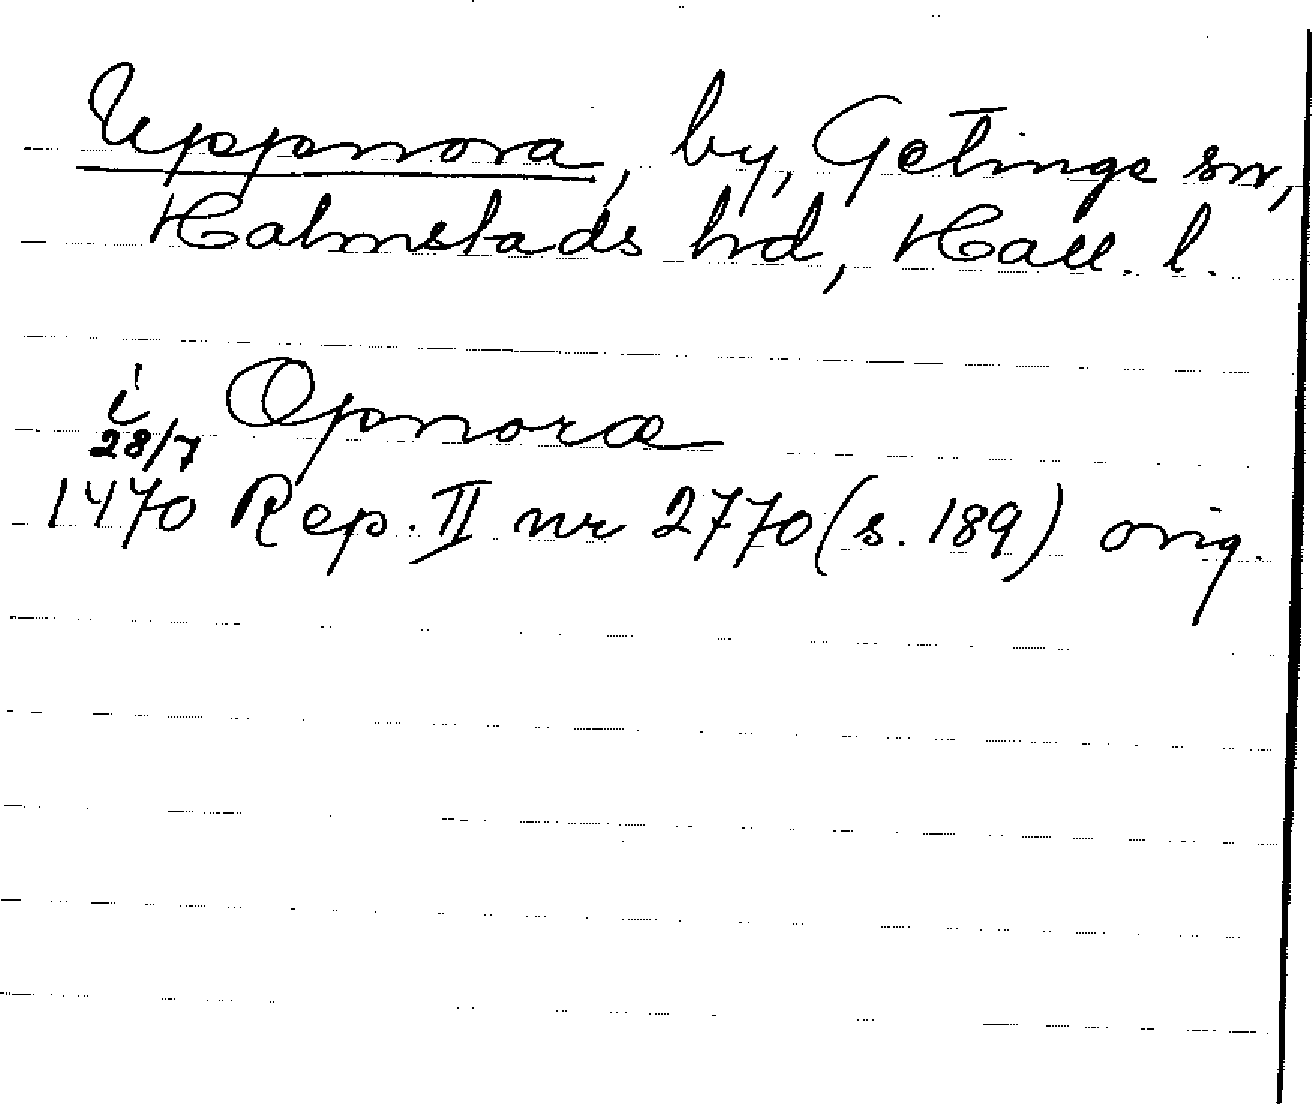 Uppnora, by, Getinge sn,
Halmstads hd, Hall. l.
i Opnoræ
28/7
1470 Rep. II nr 2770 (s. 189) orig.